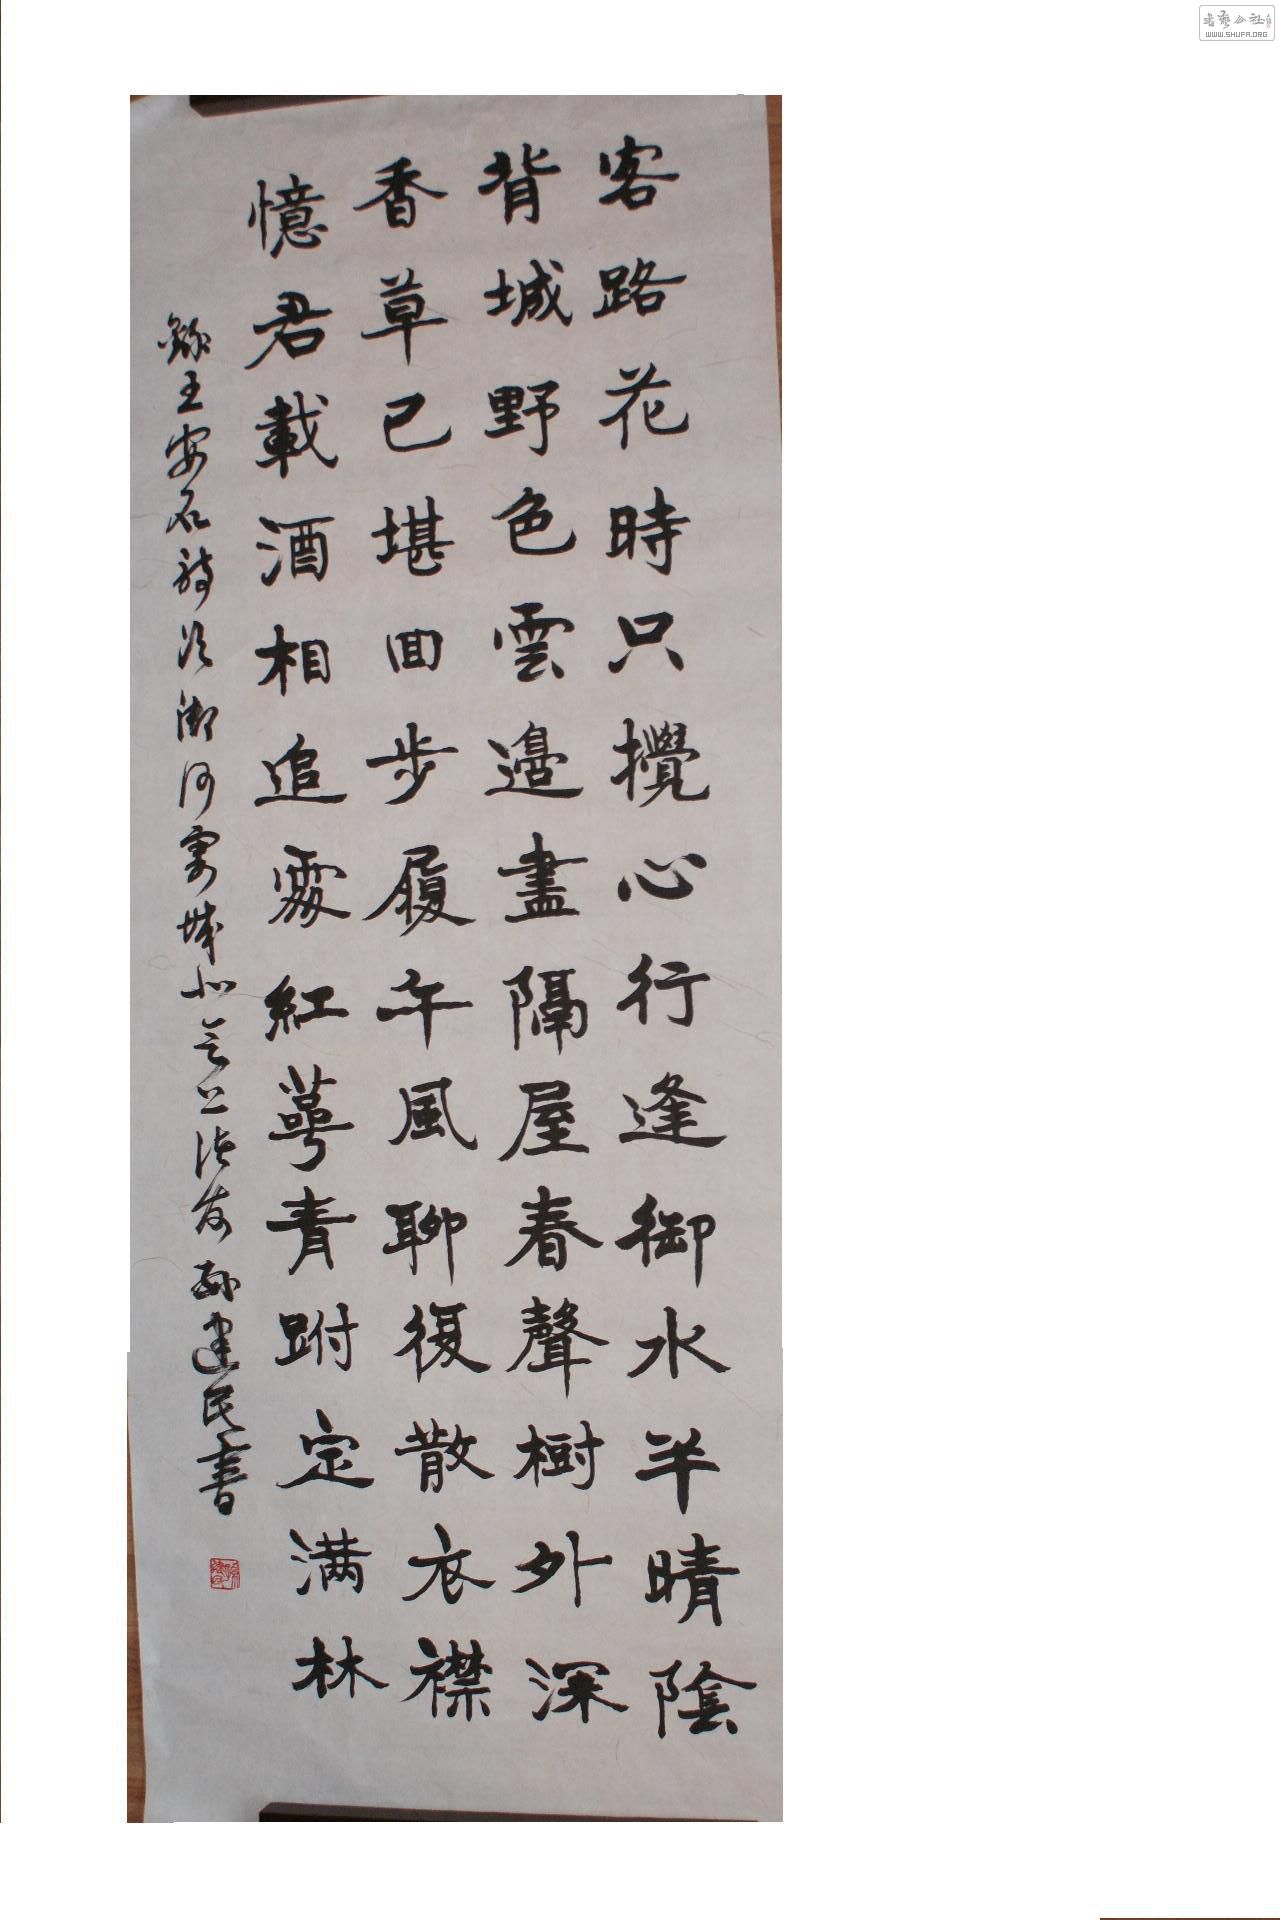 客路花時只攪心行逢御水半晴陰
背城野色雲邊盡隔屋春聲樹外深
香草已堪回步履午風聊復散衣襟
憶君載酒相追處紅萼青跗定滿林
錄王安石詩次御河寄城北會上諸友孫建民書
書藝公社
WWW.SHUFA.ORG